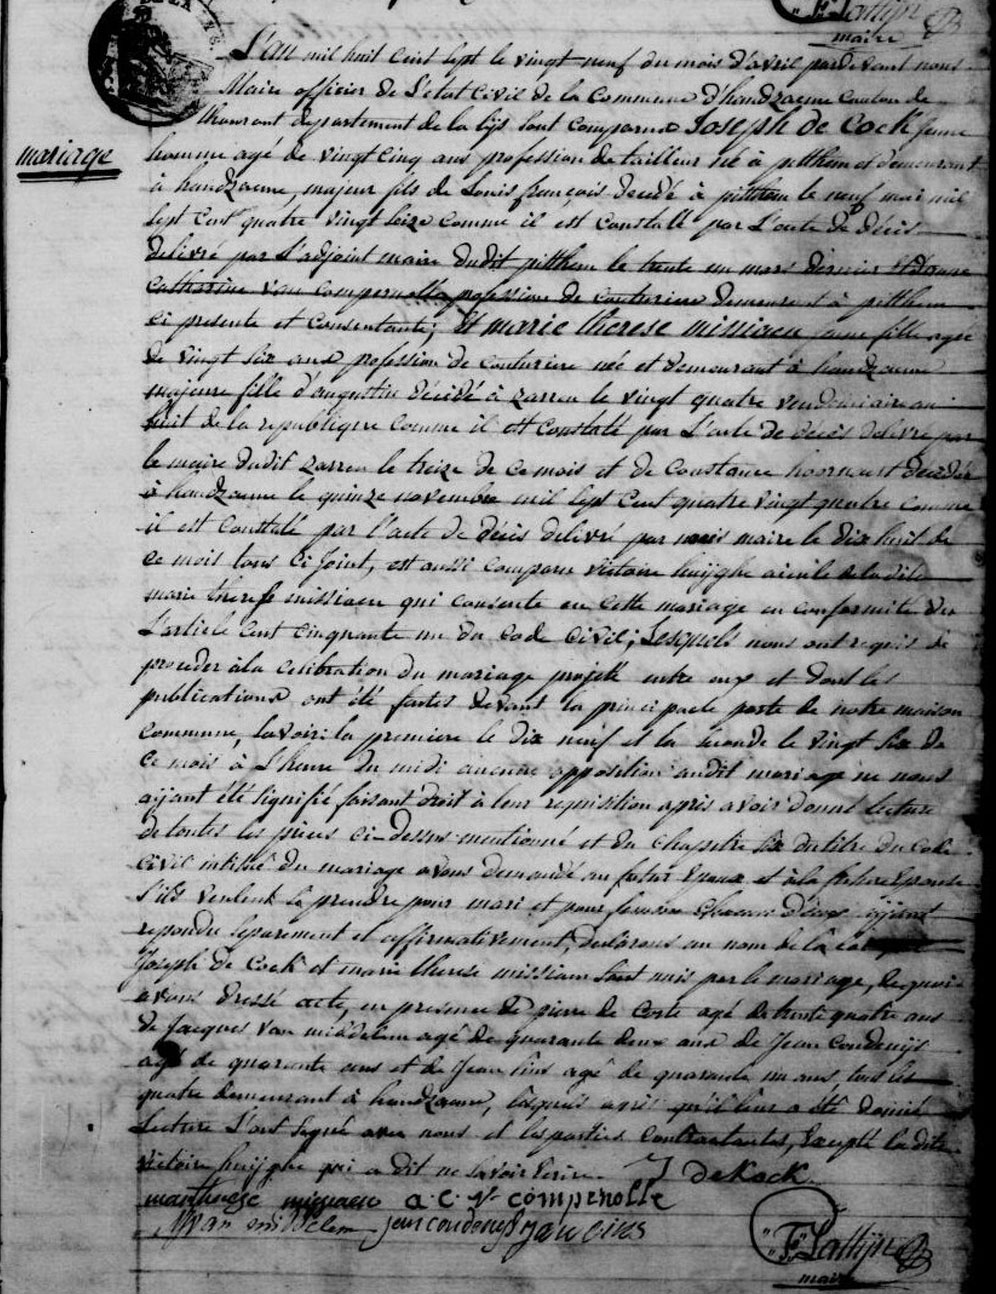 F. Lattijn
maire
L'an mil huit cent sept le vingt neuf du mois d'avril pardevant nous
Maire officier de L'etat Civil de la Commune d'handzaeme Canton de
thourout departement de la lijs sont comparus Joseph de Cock jeune
mariage
homme agé de vingt cinq ans profession de tailleur né à pitthem et demeurant
à handzaeme, majeur fils de Louis françois decedé à pitthem le neuf mai mil
sept cent quatre vingt seize comme il est constaté par L'acte de décès
delivré par L'adjoint maire dudit pitthem le trente un mars dernier et d'anne
catherine van compernolle profession de couturiere demeurant à pitthem
ci presente et consentante; Et marie therese missiaen jeune fille agée
de vingt six ans profession de couturiere née et demeurant à handzaeme
majeure fille d'augustin décédé à zarren le vingt quatre vendemiaire an
huit de la republique comme il est constaté par L'acte de décès delivré par
le maire dudit zarren le treize de ce mois et de Constance hoornaert decedée
à handzaeme le quinze novembre mil sept cent quatre vingt quatre comme
il est constaté par l'acte de décès delivré par nous maire le dix huit de
ce mois tous ci joint, est aussi comparu victoire huijghe aieule de la dite
marie therese missiaen qui consente en cette mariage en conformité de
L'article cent cinquante un du code civil; Lesquels nous ont requis de
proceder à la celebration du mariage projetté entre eux et dont les
publications ont été faites devant la principale porte de notre maison
commune, savoir: la premiere le dix neuf et la seconde le vingt six de
ce mois à L'heure du midi aucune opposition audit mariage ne nous
aijant été signifié faisant droit à leur requisition après avoir donné lecture
de toutes les pieces ci-dessus mentionné et du chapitre six du titre du code
civil intitulé du mariage avons demandé au futur Epoux et à la future Epouse
s'ils veulent se prendre pour mari et pour femme chacun d'eux aijant
repondu separement et affirmativement, declarons au nom de la loi
Joseph de Cock et marie therese missiaen sont unis par le mariage, de quoi
avons dressé acte, en presence de pierre de Coste agé de trente quatre ans
de Jacques van middelem agé de quarante deux ans de Jean Coudenijs
agé de quarante ans et de Jean Sins agé de quarante un ans, tous les
quatre demeurant à handzaeme, lesquels après qu'il leur a été donné
Lecture L'ont signé avec nous et les parties Contractantes, Excepté la dite
victoire huijghe qui a dit ne savoir Ecrire. J deKock
marie therese missiaen a.c. V compernolle
van middelem jean coudenijs
F. Lattijn
maire